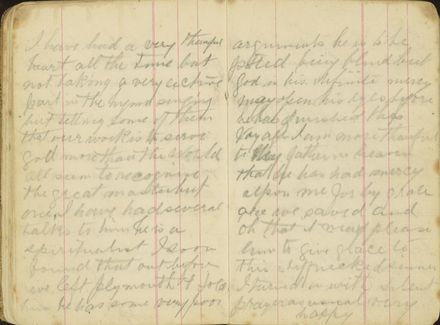 I have had a very thankful
heart all the time but
not taking a very active
part in the hymn singing
but telling some of them
that our work is to serve
god more than the world
all seem to recognise
the great master but
one I have had several
talks to him he is a
spiritualist I soon
found that out before
we left plymouth I
he has some very poor
arguments he is to be
pitied being blind but
god in his infinite mercy
may open his eyes before
he has finished this
I am more thankful
to my father in heaven
that he has had mercy
upon me for by grace
are we saved and
oh that it may please
him to give grace to
this sinner
I turn in with silent
prayer as usual very
happy